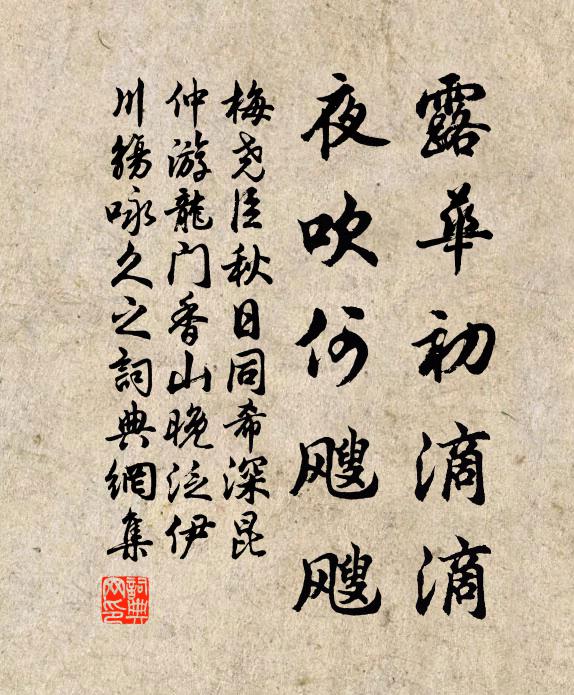 露華初滴滴
夜吹何颼颼
梅尧臣秋日同希深昆
仲游龍门香山晚泛伊
川觞咏久之詞典網集
詞典
网印